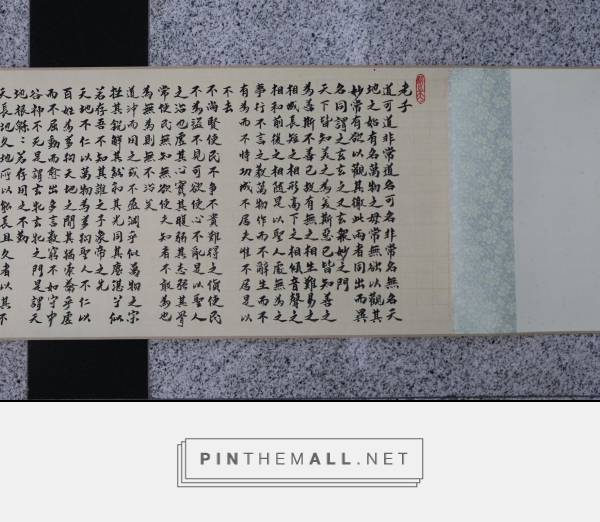 老子
道可道非常道名可名非常名無名天
地之始有名萬物之母常無欲以觀其
妙常有欲以觀其徼此兩者同出而異
名同謂之玄玄之又玄眾妙之門
天下皆知美之為美斯惡已皆知善之
為善斯不善已故有無之相生難易之
相成長短之相形高下之相傾音聲之
相和前後之相隨是以聖人處無為之
事行不言之教萬物作而不辭生而不
有為而不恃功成不居夫惟不居是以
不去
不尚賢使民不爭不貴難得之貨使民
不為盜不見可欲使心不亂是以聖人
之治也虛其心實其腹弱其志強其骨
常使民無知無欲使夫知者不敢為也
為無為則無不治矣
道沖而用之或不盈淵乎似萬物之宗
挫其銳解其紛和其光同其塵湛兮似
若存吾不知其誰之子象帝之先
天地不仁以萬物為芻狗聖人不仁以
百姓為芻狗天地之間其猶橐籥乎虛
而不屈動而愈出多言數窮不如守中
谷神不死是謂玄牝玄牝之門是謂天
地根緜〻若存用之不勤
天長地久地所以能長且久者以其不
PINTHEMALL.NET